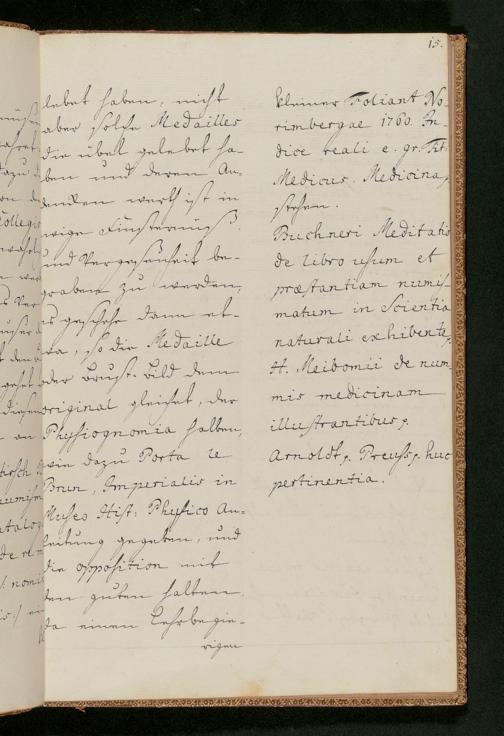 15.
lebet haben, nicht
aber solche Medailles
die übel gelebet ha-
ben und deren An-
dencken werth ist in
ewige Finsternüß
und Vergessenheit be-
graben zu werden,
es geschehe dann et-
wa, so die Medaille
oder Brust-Bild dem
original gleichet, der
Physiognomia halben,
wie dazu Porta le
Brun, Imperialis in
Museo Hist: Physico An-
leitung gegeben, und
die opposition mit
den guten halten,
da einen Lehrbegie-
rigen
kleiner Foliant No-
rimbergae 1760. In-
dice reali e. gr. Tit.
Medicus, Medicina,
stehen.
Buchneri Meditatio
de libro usum et
præstantiam numis-
matum in Scientia
naturali exhibente,
H. Meibomii de num
mis medicinam
illustrantibus,
Arnoldt, Preuss, huc
pertinentia.